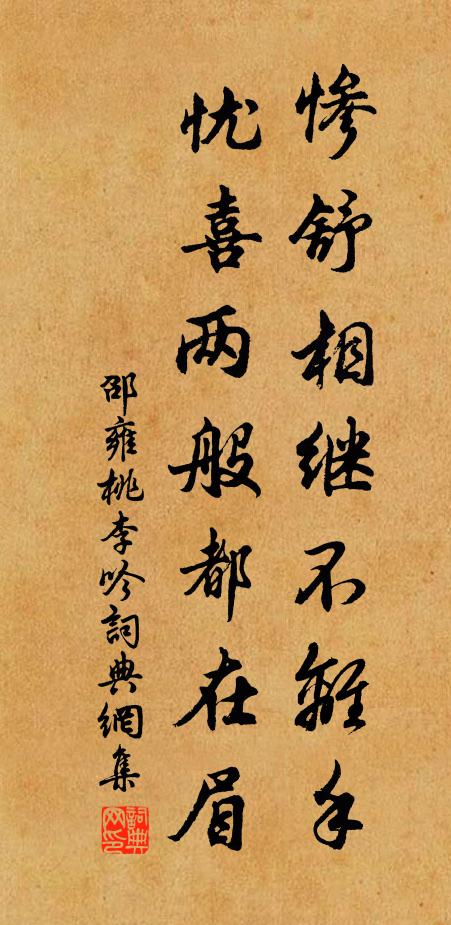 惨舒相继不離手
忧喜两般都在眉
邵雍桃李吟詞典網集
詞典网印